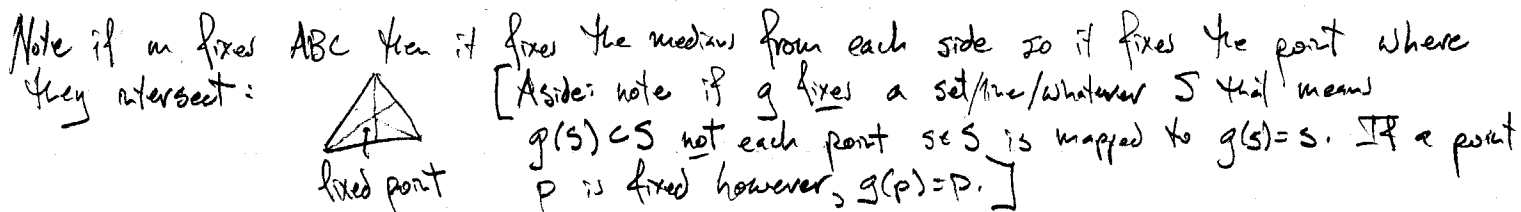 Note if m fixes ABC then it fixes the medians from each side so it fixes the point where
they intersect:
[Aside: note if g fixes a set/line/whatever S that means
g(S) ⊂ S not each point s∈S is mapped to g(s)=s. If a point
p is fixed however, g(p)=p.]
fixed point